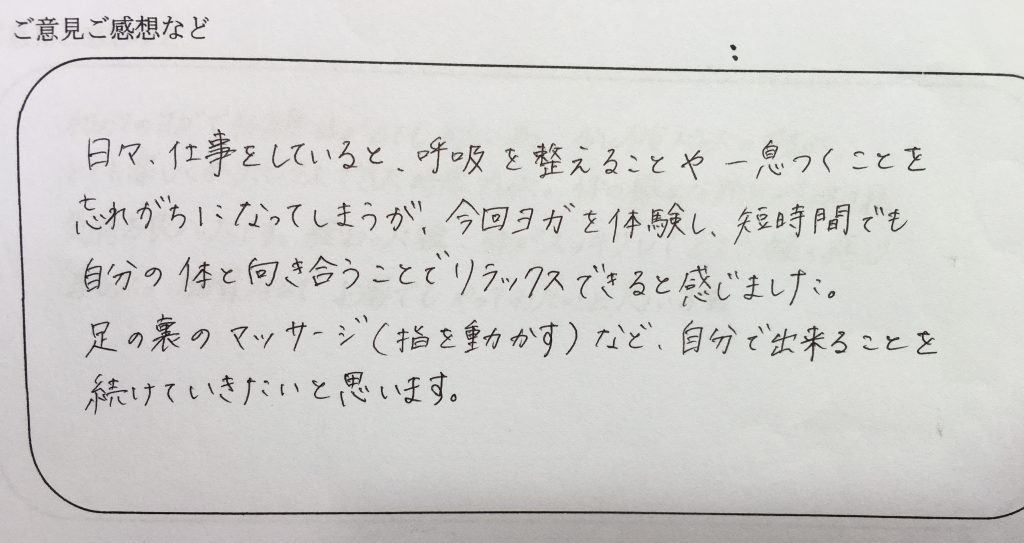 ご意見ご感想など
日々、仕事をしていると、呼吸を整えることや一息つくことを
忘れがちになってしまうが、今回ヨガを体験し、短時間でも
自分の体と向き合うことでリラックスできると感じました。
足の裏のマッサージ(指を動かす)など、自分で出来ることを
続けていきたいと思います。